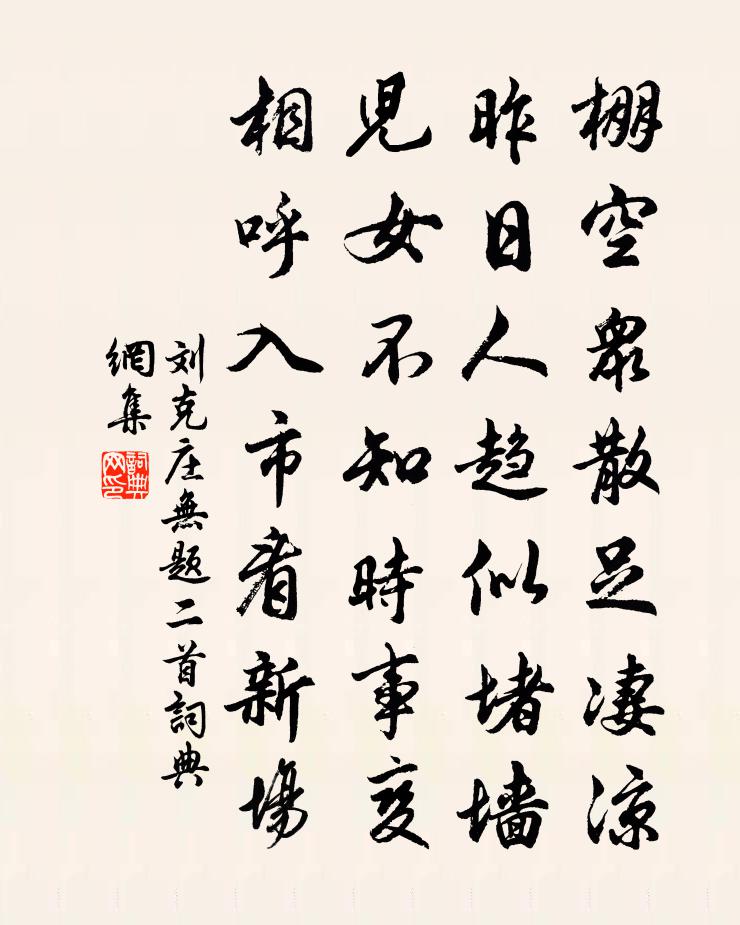 棚空眾散足凄凉
昨日人趋似堵墙
児女不知時事变
相呼入市看新場
刘克庄無题二首詞典
網集
詞典
网印